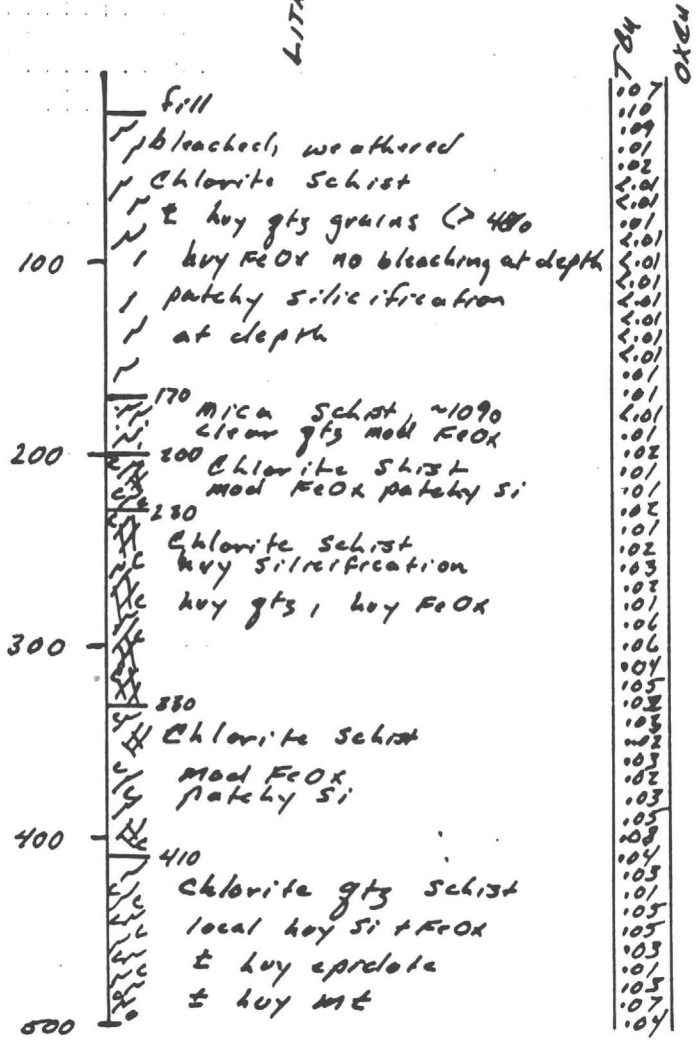 LITH
TCu
OXCu
fill
bleached, weathered
Chlorite Schist
± hvy qtz grains (> 40%
100 hvy FeOx no bleaching at depth
patchy silicification
at depth
170
mica schist, ~10%
clear qtz mod FeOx
200 200
Chlorite Shist
mod FeOx patchy Si
230
Chlorite Schist
hvy silicification
hvy qtz, hvy FeOx
300
330
Chlorite Schist
mod FeOx
patchy Si
400
410
Chlorite qtz schist
local hvy Si + FeOx
± hvy epidote
± hvy mt
500
.07
.10
.09
.01
.02
<.01
<.01
.01
<.01
<.01
<.01
<.01
<.01
<.01
<.01
.01
.01
<.01
.01
.02
.01
.01
.02
.01
.02
.03
.02
.01
.06
.06
.04
.05
.03
.02
.03
.05
.08
.04
.03
.01
.05
.05
.03
.01
.03
.07
.04